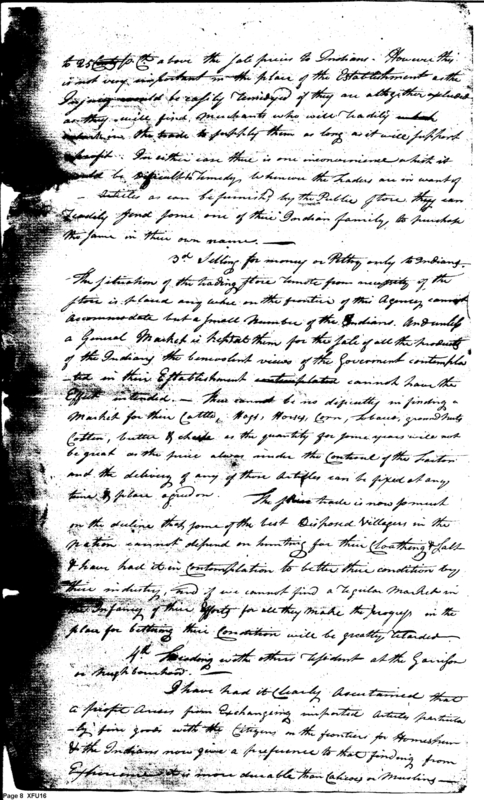 to 25 Cents p Ct above the sale prices to Indians. However this
is not very important in the place of the Establishment as the
Injury would be easily remidyed if they are altogether excluded
as they will find Merchants who will readily
in the trade to supply them as long as it will support
a profit. In either case there is one inconvenience which it
would be difficult to remedy, whenever the traders are in want of
articles as can be furnished by the Public store they can
readily find some one of their Indian family, to purchase
the same in their own name. —
3d Selling for money or Peltry only to Indians —
The situation of the trading store remote from necessity of the
store is placed any where on the frontier of this Agency cannot
accommodate but a small number of the Indians. And unless
a General Market is kept at them for the sale of all the products
of the Indians the benevolent views of the Government contempla
-ted in their Establishment contemplated cannot have the
Effect intended. — There cannot be any dificulty in finding a
Market for their Cattle, Hogs, Horses, Corn, tobacco, ground nuts
Cotton, butter & cheese as the quantity for some years will not
be great as the price always under the Controul of the Factor
and the delivery of any of those Articles can be fixed at any
time & place agreed on. The trade is now so much
on the decline that some of the best Disposed Villagers in the
Nation cannot depend on hunting for their Cloathing & Salt
& have had it in Contemplation to better their condition by
their industry, and if we cannot find a regular Market in
the Infancy of their Efforts for all they make the progress in the
plan for bettering their Condition will be greatly retarded —
4th Trading with others resident at the Garrison
or neighbourhood. —
I have had it clearly ascertained that
a profit arises from Exchanging imported Articles particula
-ly fine goods with the Citizens on the frontier for Homespun
& the Indians now give a preference to that finding from
Experience it is more durable than Calicoes or Muslins —
Page 8 XFU16